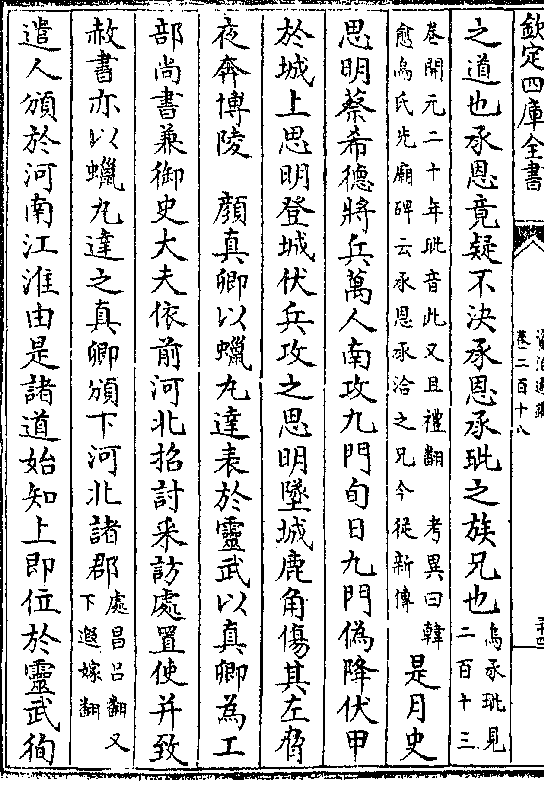 欽定四庫全書
資治通鑑
卷二百十八
之道也承恩竟疑不決承恩承玼之族兄也
烏承玼見
二百十三
卷開元二十年玼音此又且禮翻　考異曰韓
愈烏氏先廟碑云承恩承洽之兄今從新傳
是月史
思明蔡希德將兵萬人南攻九門旬日九門偽降伏甲
於城上思明登城伏兵攻之思明墜城鹿角傷其左脅
夜奔博陵　顏真卿以蠟丸達表於靈武以真卿為工
部尚書兼御史大夫依前河北招討采訪處置使并致
赦書亦以蠟丸達之真卿頒下河北諸郡
處昌呂翻又
下遐嫁翻
遣人頒於河南江淮由是諸道始知上即位於靈武徇